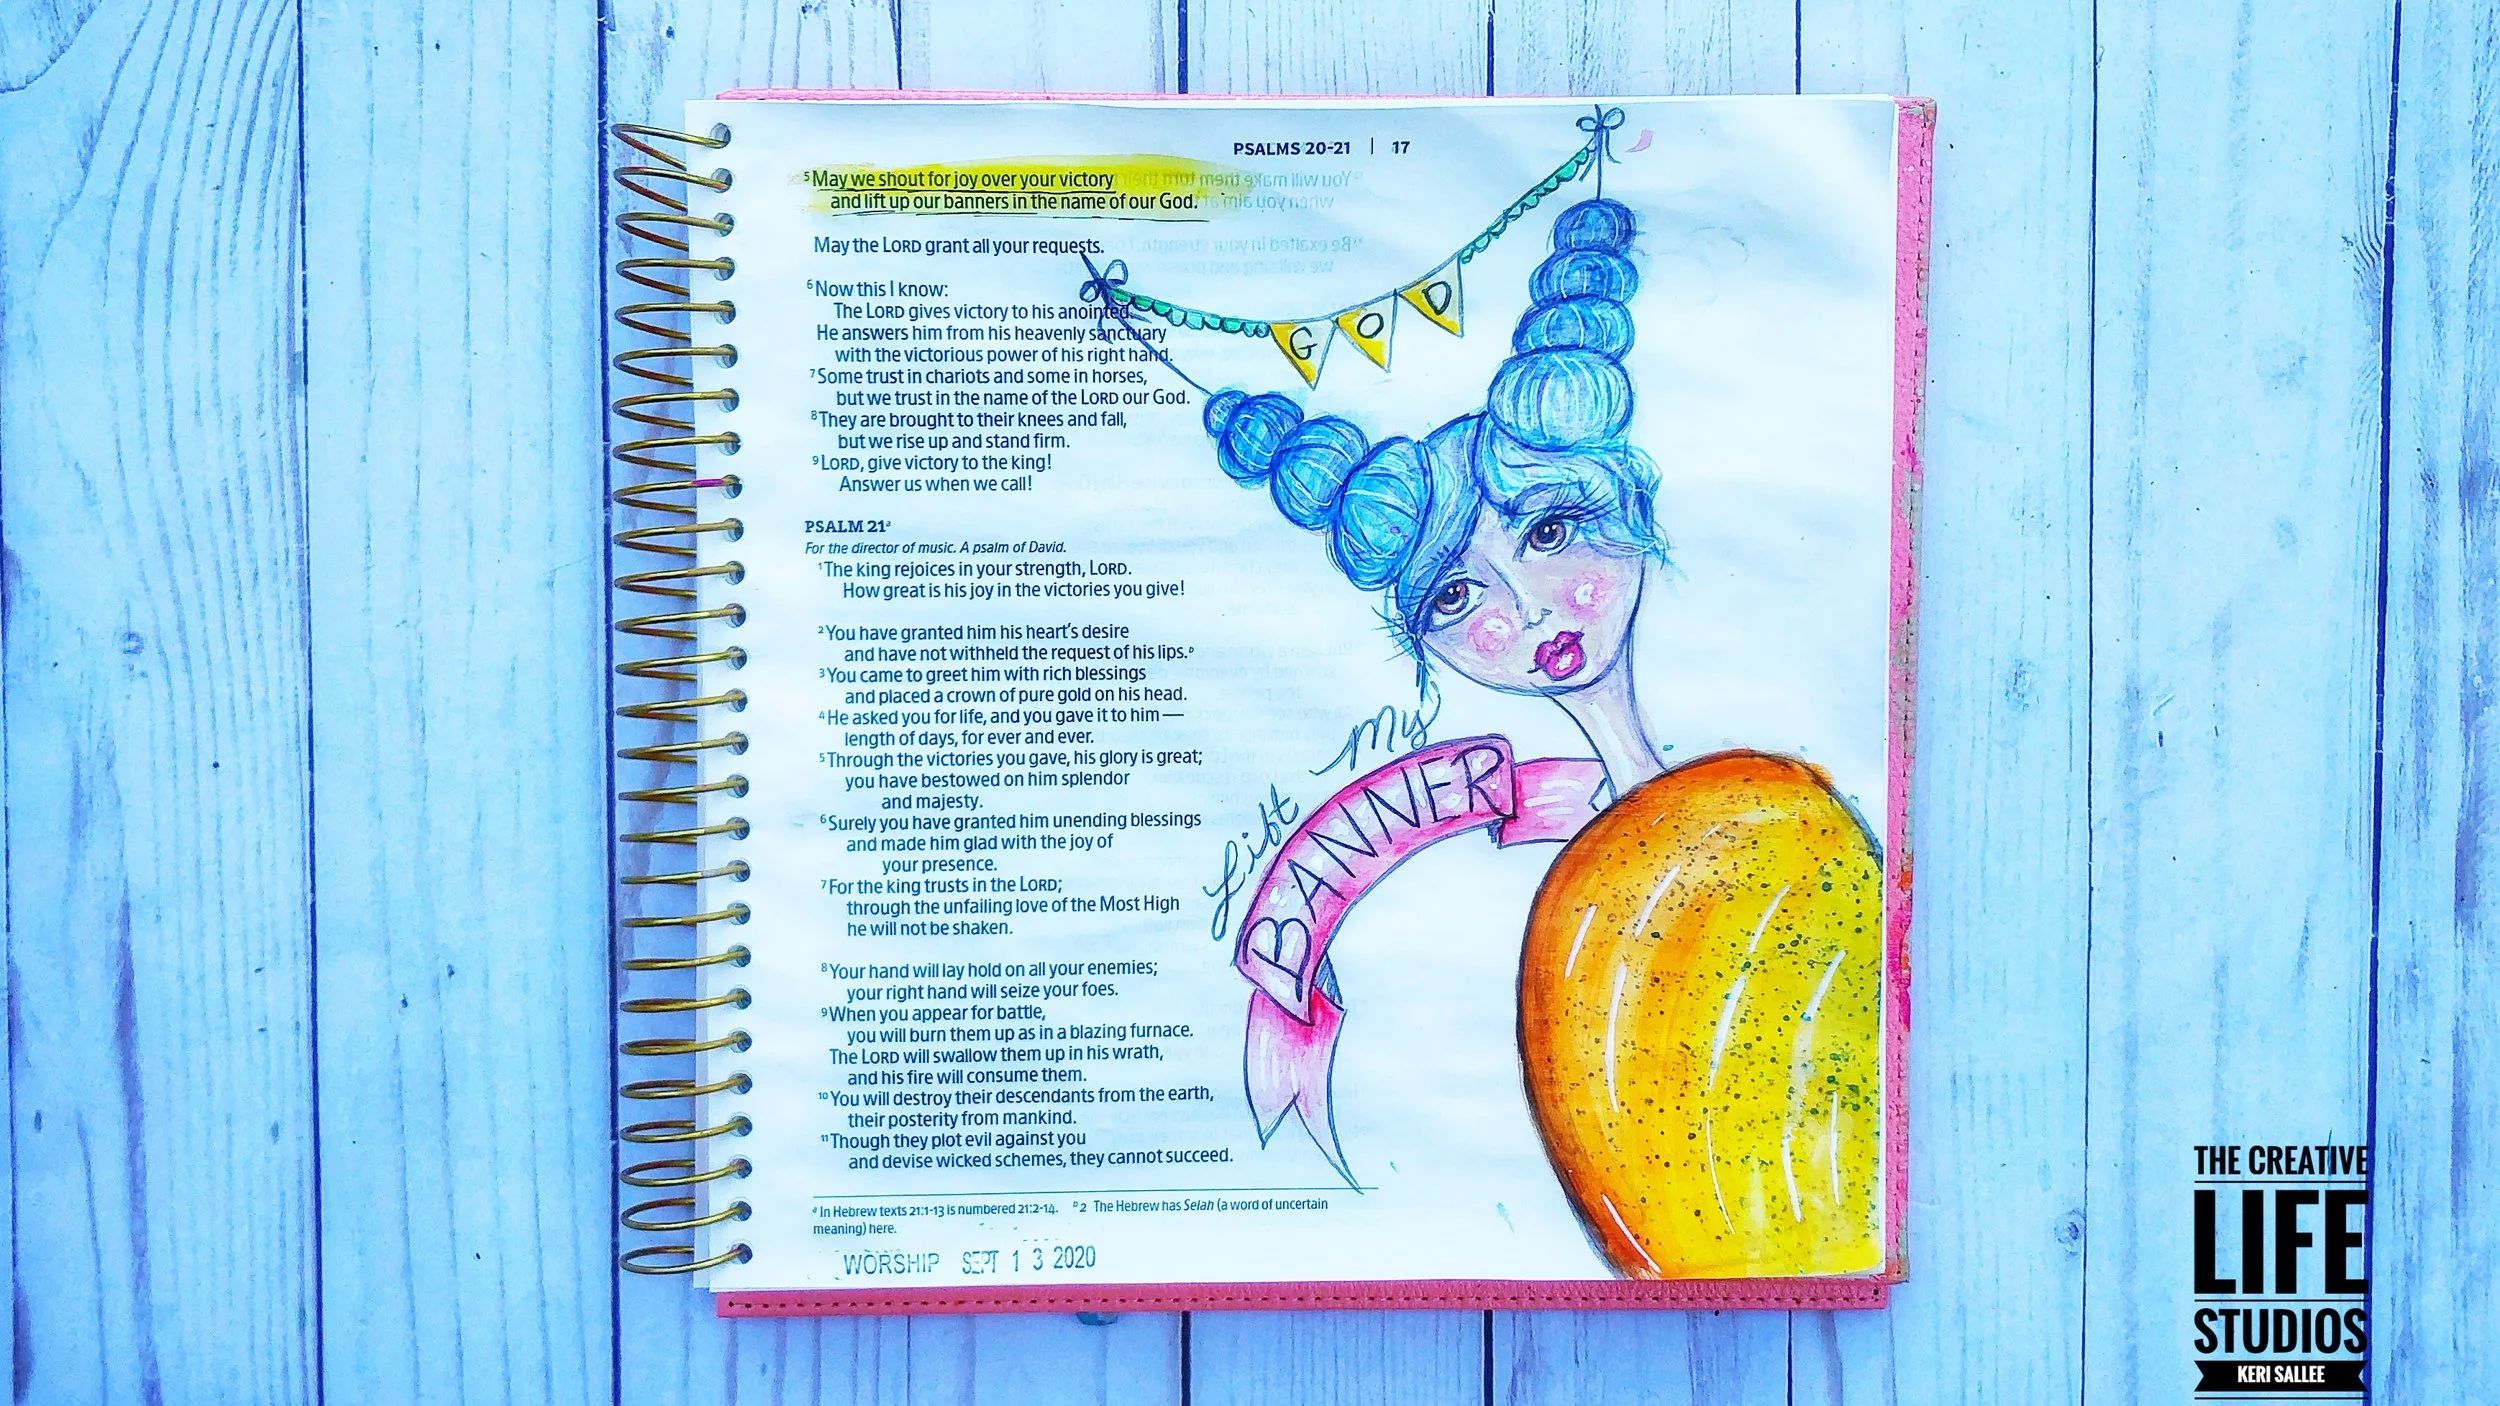 PSALMS 20-21 | 17
⁵May we shout for joy over your victory
and lift up our banners in the name of our God.
May the LORD grant all your requests.
⁶Now this I know:
The LORD gives victory to his anointed.
He answers him from his heavenly sanctuary
with the victorious power of his right hand.
⁷Some trust in chariots and some in horses,
but we trust in the name of the LORD our God.
⁸They are brought to their knees and fall,
but we rise up and stand firm.
⁹LORD, give victory to the king!
Answer us when we call!
PSALM 21ᵃ
For the director of music. A psalm of David.
¹The king rejoices in your strength, LORD.
How great is his joy in the victories you give!
²You have granted him his heart's desire
and have not withheld the request of his lips.ᵇ
³You came to greet him with rich blessings
and placed a crown of pure gold on his head.
⁴He asked you for life, and you gave it to him—
length of days, for ever and ever.
⁵Through the victories you gave, his glory is great;
you have bestowed on him splendor
and majesty.
⁶Surely you have granted him unending blessings
and made him glad with the joy of
your presence.
⁷For the king trusts in the LORD;
through the unfailing love of the Most High
he will not be shaken.
⁸Your hand will lay hold on all your enemies;
your right hand will seize your foes.
⁹When you appear for battle,
you will burn them up as in a blazing furnace.
The LORD will swallow them up in his wrath,
and his fire will consume them.
¹⁰You will destroy their descendants from the earth,
their posterity from mankind.
¹¹Though they plot evil against you
and devise wicked schemes, they cannot succeed.
ᵃ In Hebrew texts 21:1-13 is numbered 21:2-14. ᵇ 2 The Hebrew has Selah (a word of uncertain
meaning) here.
WORSHIP SEPT 13 2020
GOD
Lift My
BANNER
THE CREATIVE
LIFE
STUDIOS
KERI SALLEE